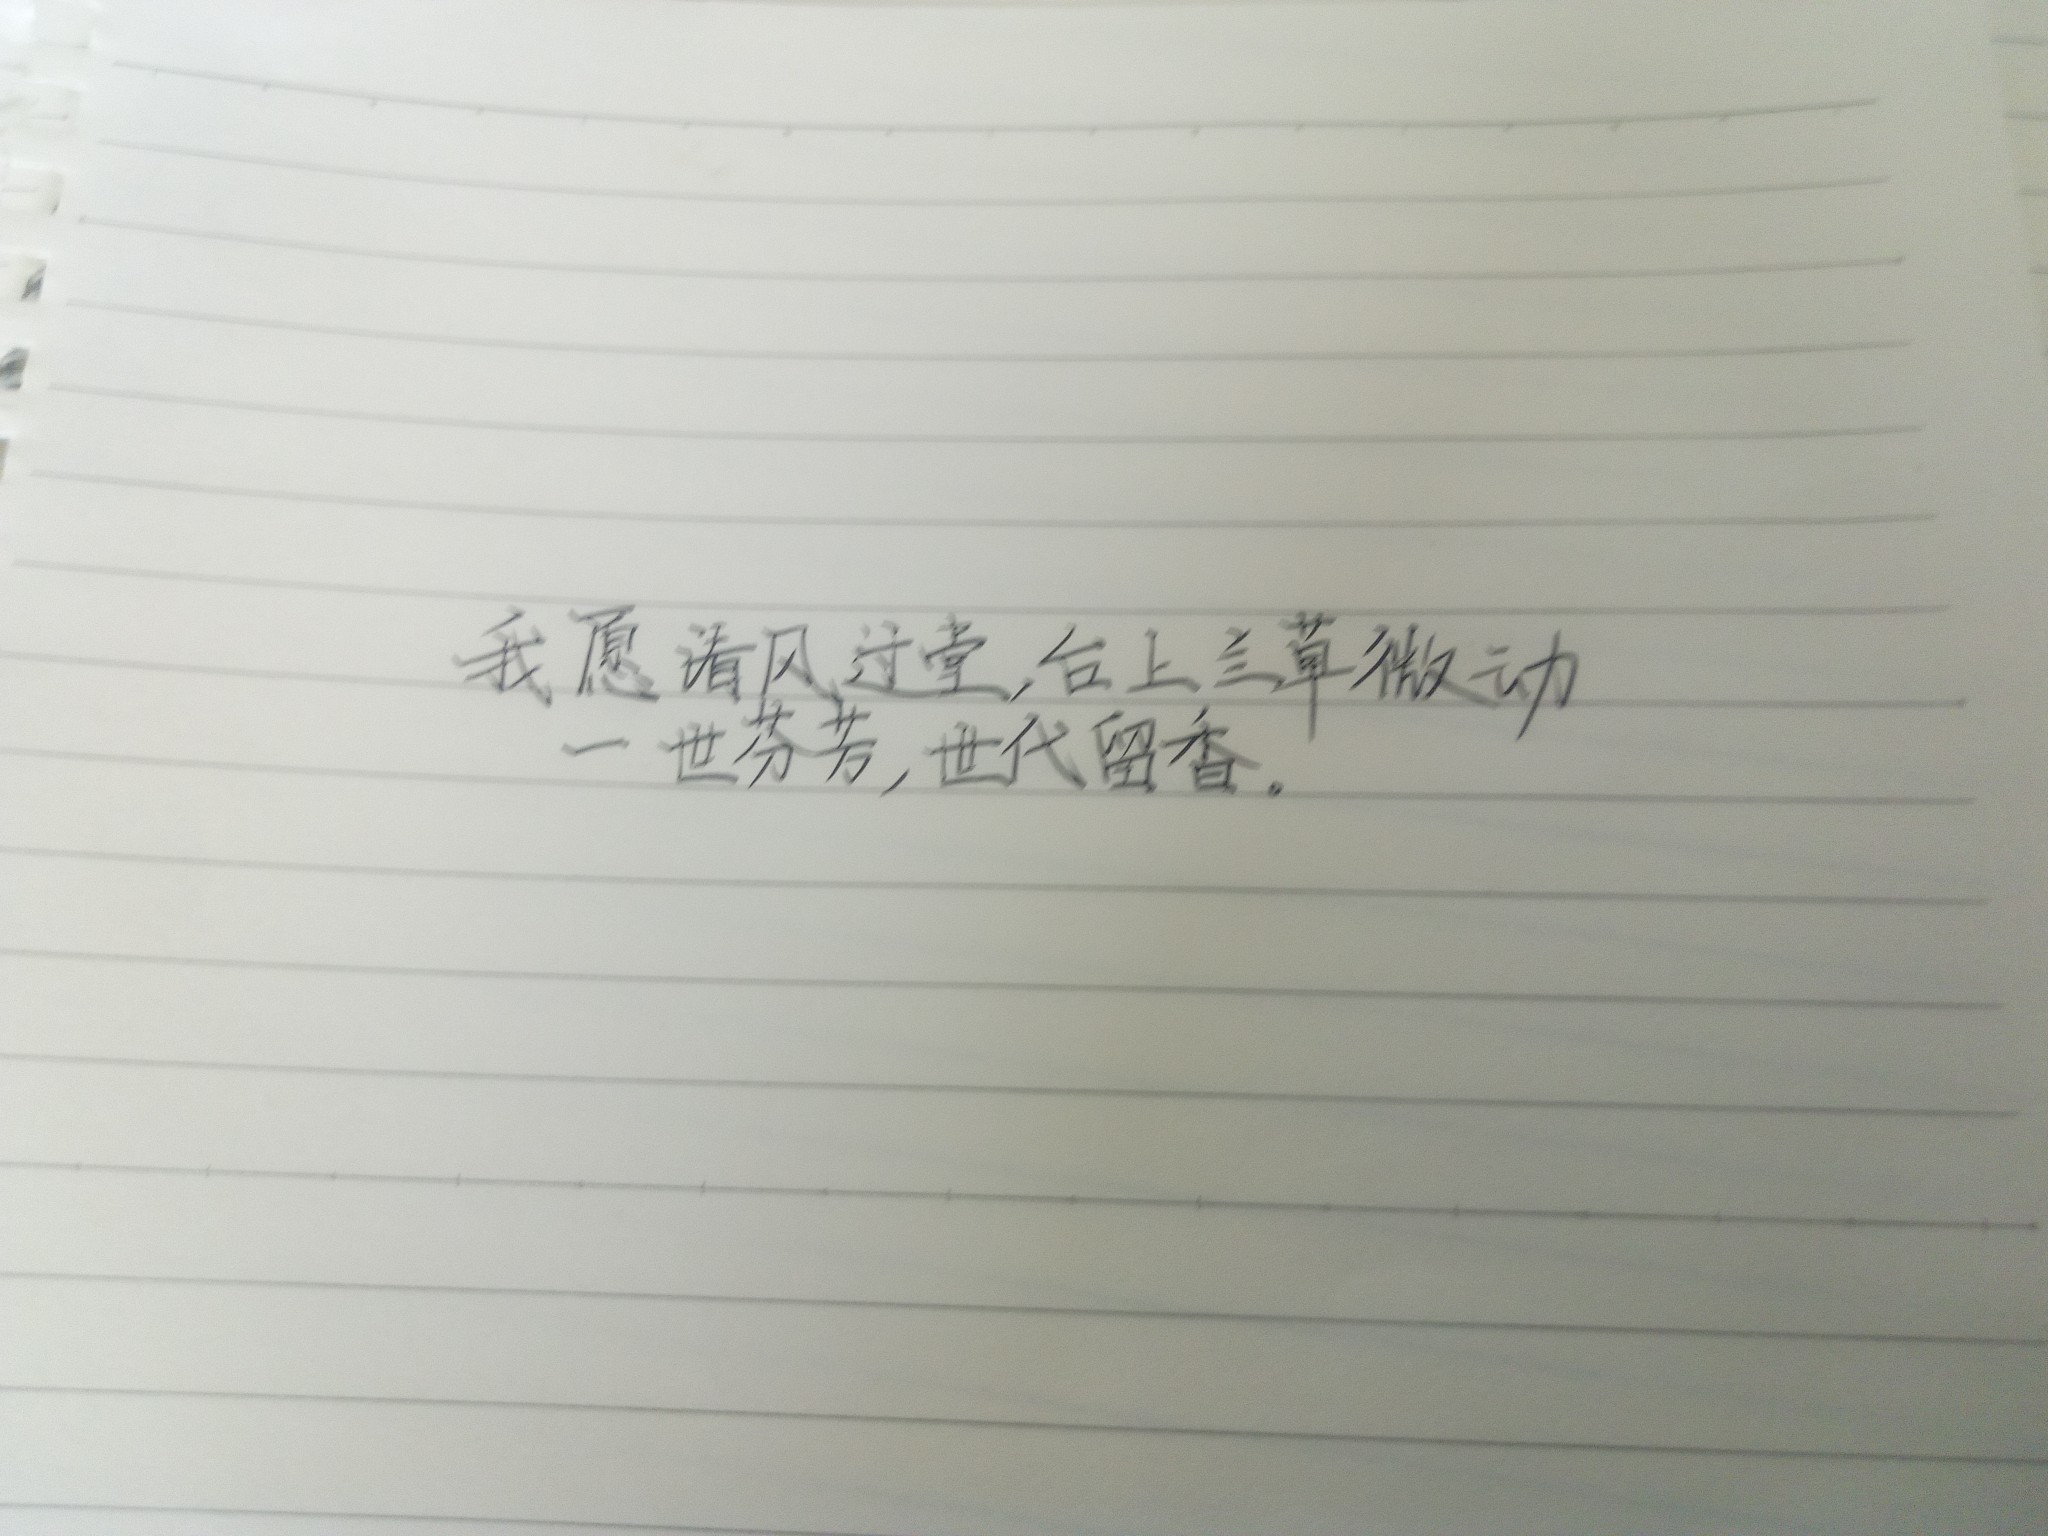 我愿清风过堂,台上兰草微动
一世芬芳,世代留香。